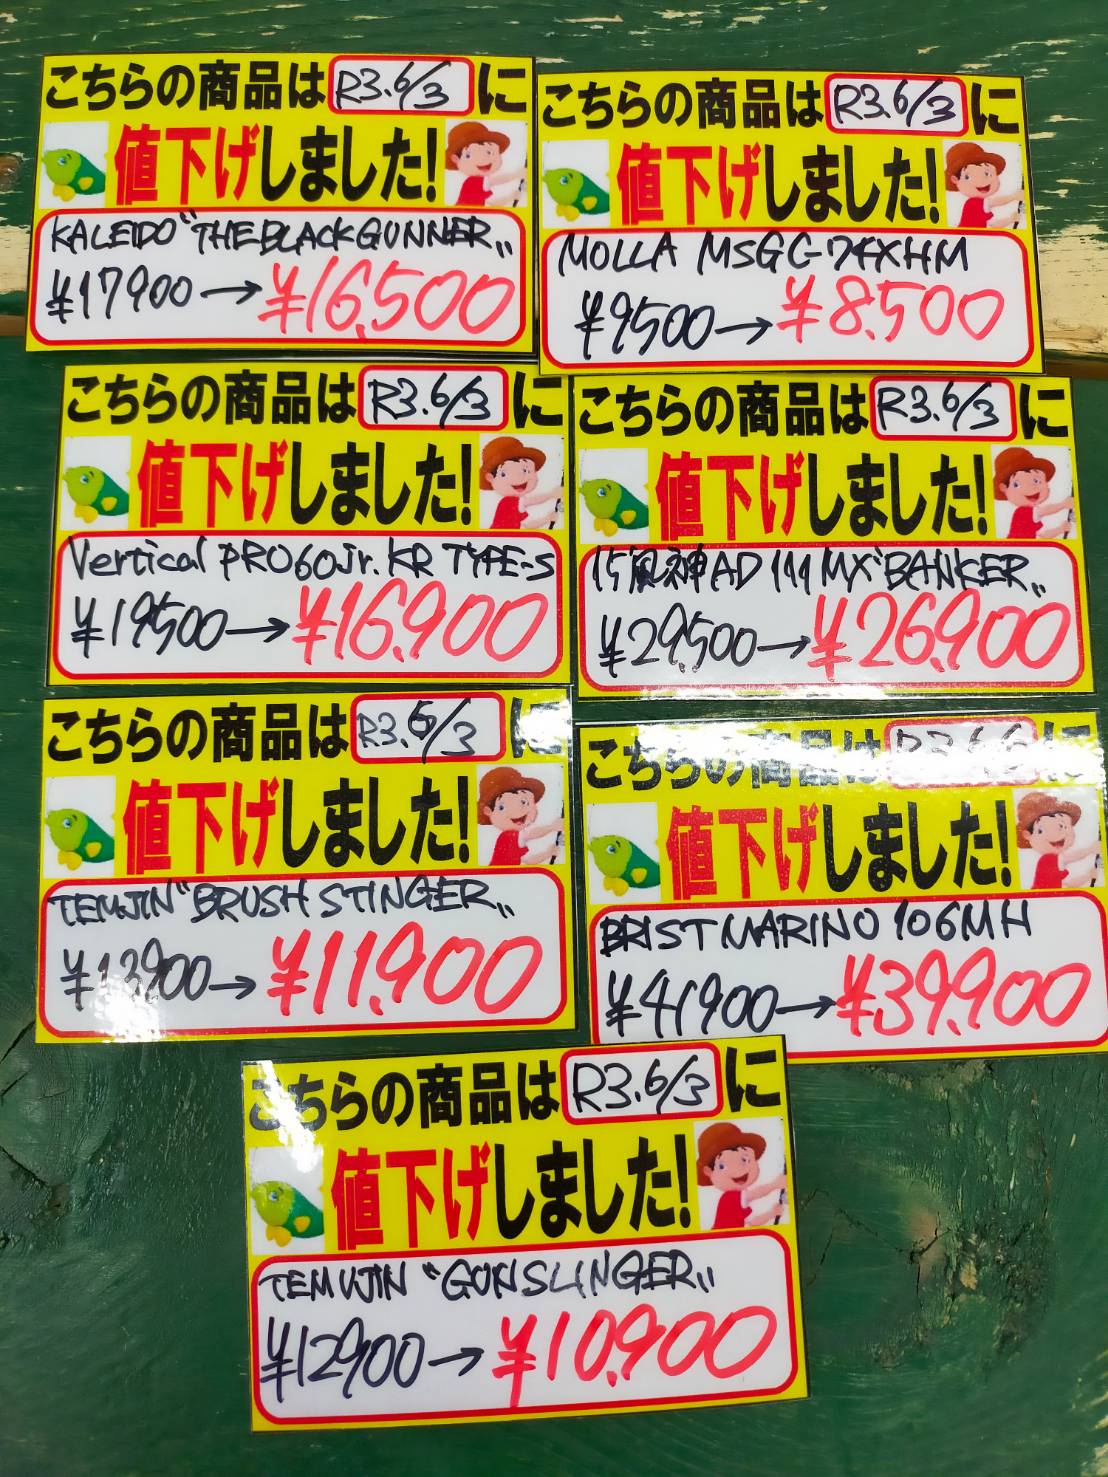 こちらの商品はR3.6/3に
値下げしました!
KALEIDO "THE BLACK GUNNER"
¥17900→¥16,500
こちらの商品はR3.6/3に
値下げしました!
MOLLA MSGC-74XHM
¥9500→¥8,500
こちらの商品はR3.6/3に
値下げしました!
Vertical PRO60Jr.KR TYPE-S
¥19500→¥16,900
こちらの商品はR3.6/3に
値下げしました!
15風神AD 111MX"BANKER"
¥29,500→¥26,900
こちらの商品はR3.6/3に
値下げしました!
TEMUJIN"BRUSH STINGER"
¥13,900→¥11,900
こちらの商品はR3.6/3に
値下げしました!
BRIST MARINO 106MH
¥41900→¥39,900
こちらの商品はR3.6/3に
値下げしました!
TEMUJIN "GUNSLINGER"
¥12900→¥10,900